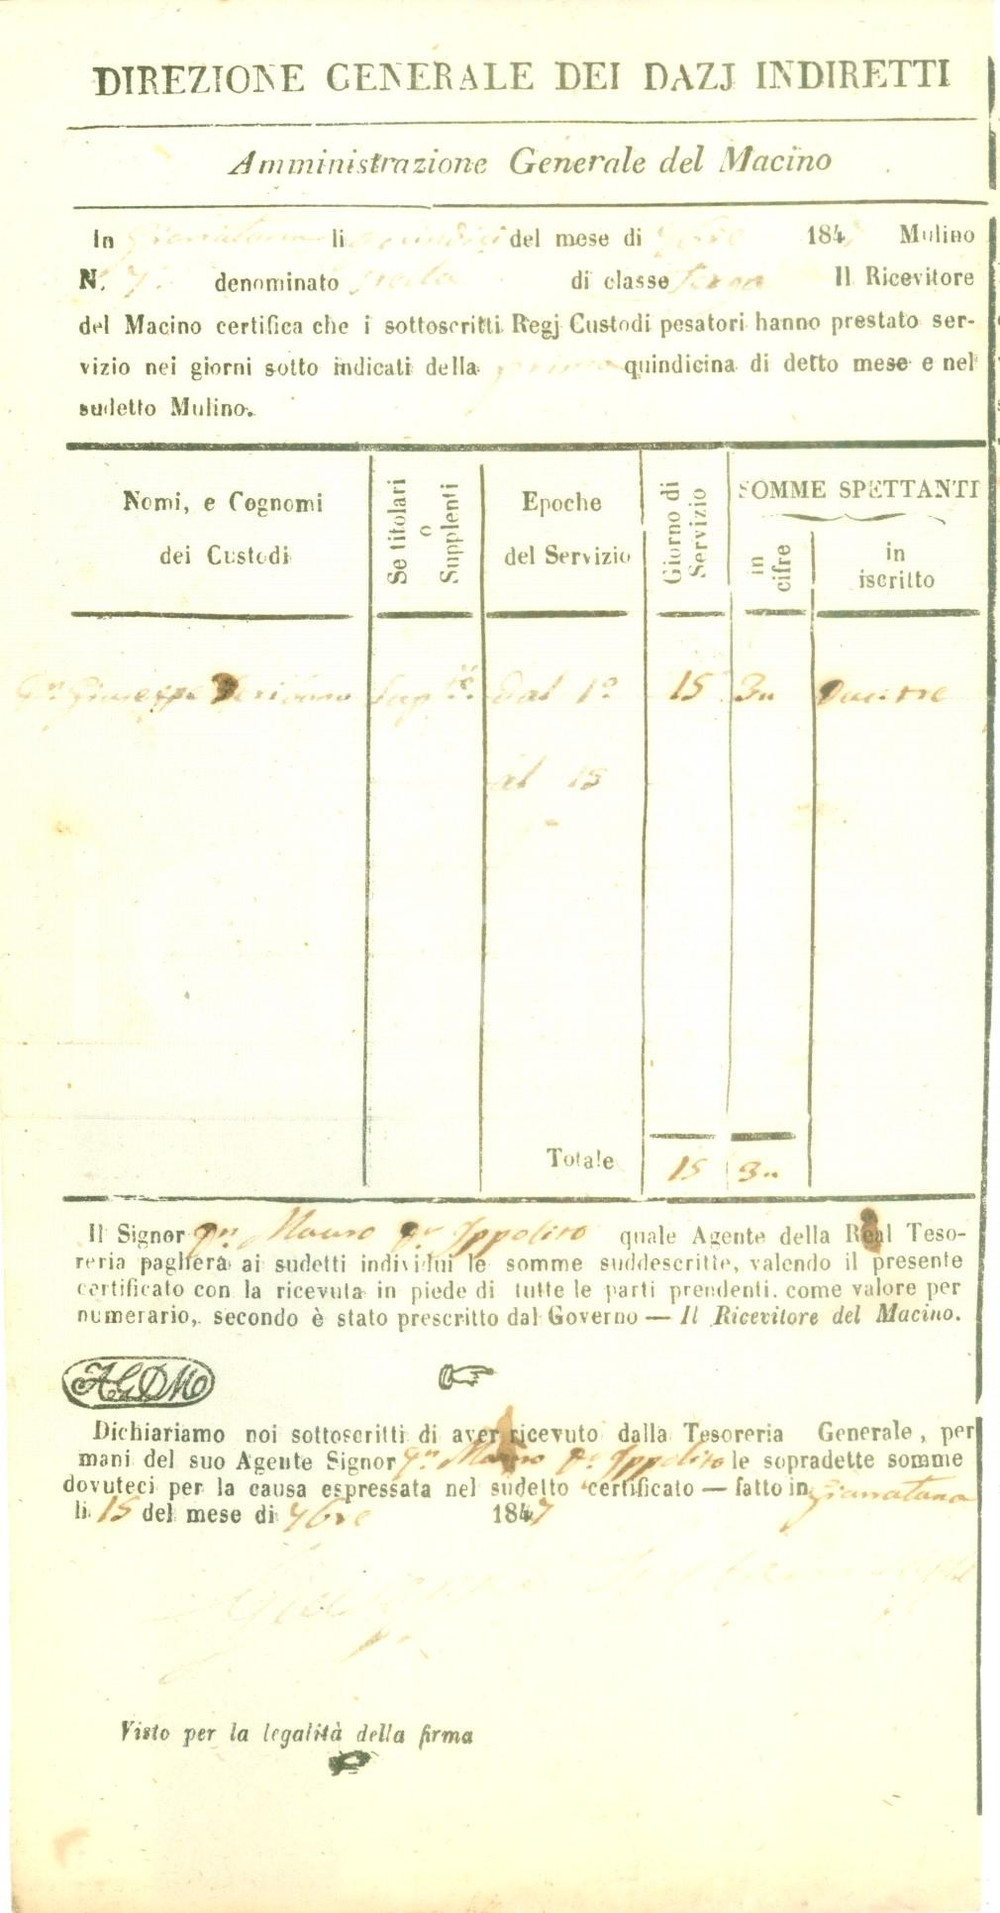 DIREZIONE GENERALE DEI DAZJ INDIRETTI
Amministrazione Generale del Macino
In li quindici del mese di 7bre 184 Mulino
N. 7. denominato di classe terza Il Ricevitore
del Macino certifica che i sottoscritti Regj Custodi pesatori hanno prestato ser-
vizio nei giorni sotto indicati della prima quindicina di detto mese e nel
sudetto Mulino.
Nomi, e Cognomi
dei Custodi
Se titolari
o
Supplenti
Epoche
del Servizio
Giorno di
Servizio
SOMME SPETTANTI
in
cifre
in
iscritto
Giuseppe dal 1º 15 3
al 15
Totale 15 3
Il Signor Mauro Ippolito quale Agente della Real Teso-
reria pagherà ai sudetti individui le somme suddescritte, valendo il presente
certificato con la ricevuta in piede di tutte le parti prendenti. come valore per
numerario, secondo è stato prescritto dal Governo — Il Ricevitore del Macino.
AGDM
Dichiariamo noi sottoscritti di aver ricevuto dalla Tesoreria Generale, per
mani del suo Agente Signor Mauro Ippolito le sopradette somme
dovuteci per la causa espressata nel sudetto certificato — fatto in
li 15 del mese di 7bre 1847
Visto per la legalità della firma